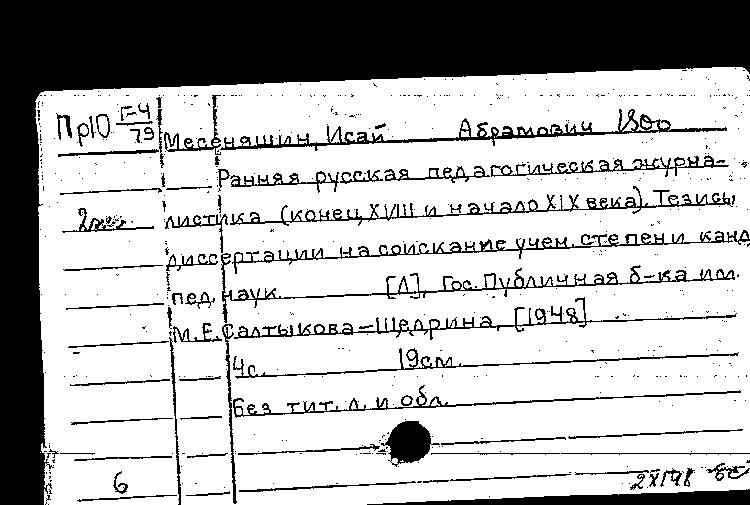 Пр10 Г-4/79
Месеняшин, Исай Абрамович
Ранняя русская педагогическая журна-
листика (конец XVIII и начало XIX века). Тезисы
диссертации на соискание учен. степени канд
пед. наук. [Л], Гос. Публичная б-ка им.
М. Е. Салтыкова-Щедрина, [1948]
4с. 19см.
Без тит. л. и обл.
6